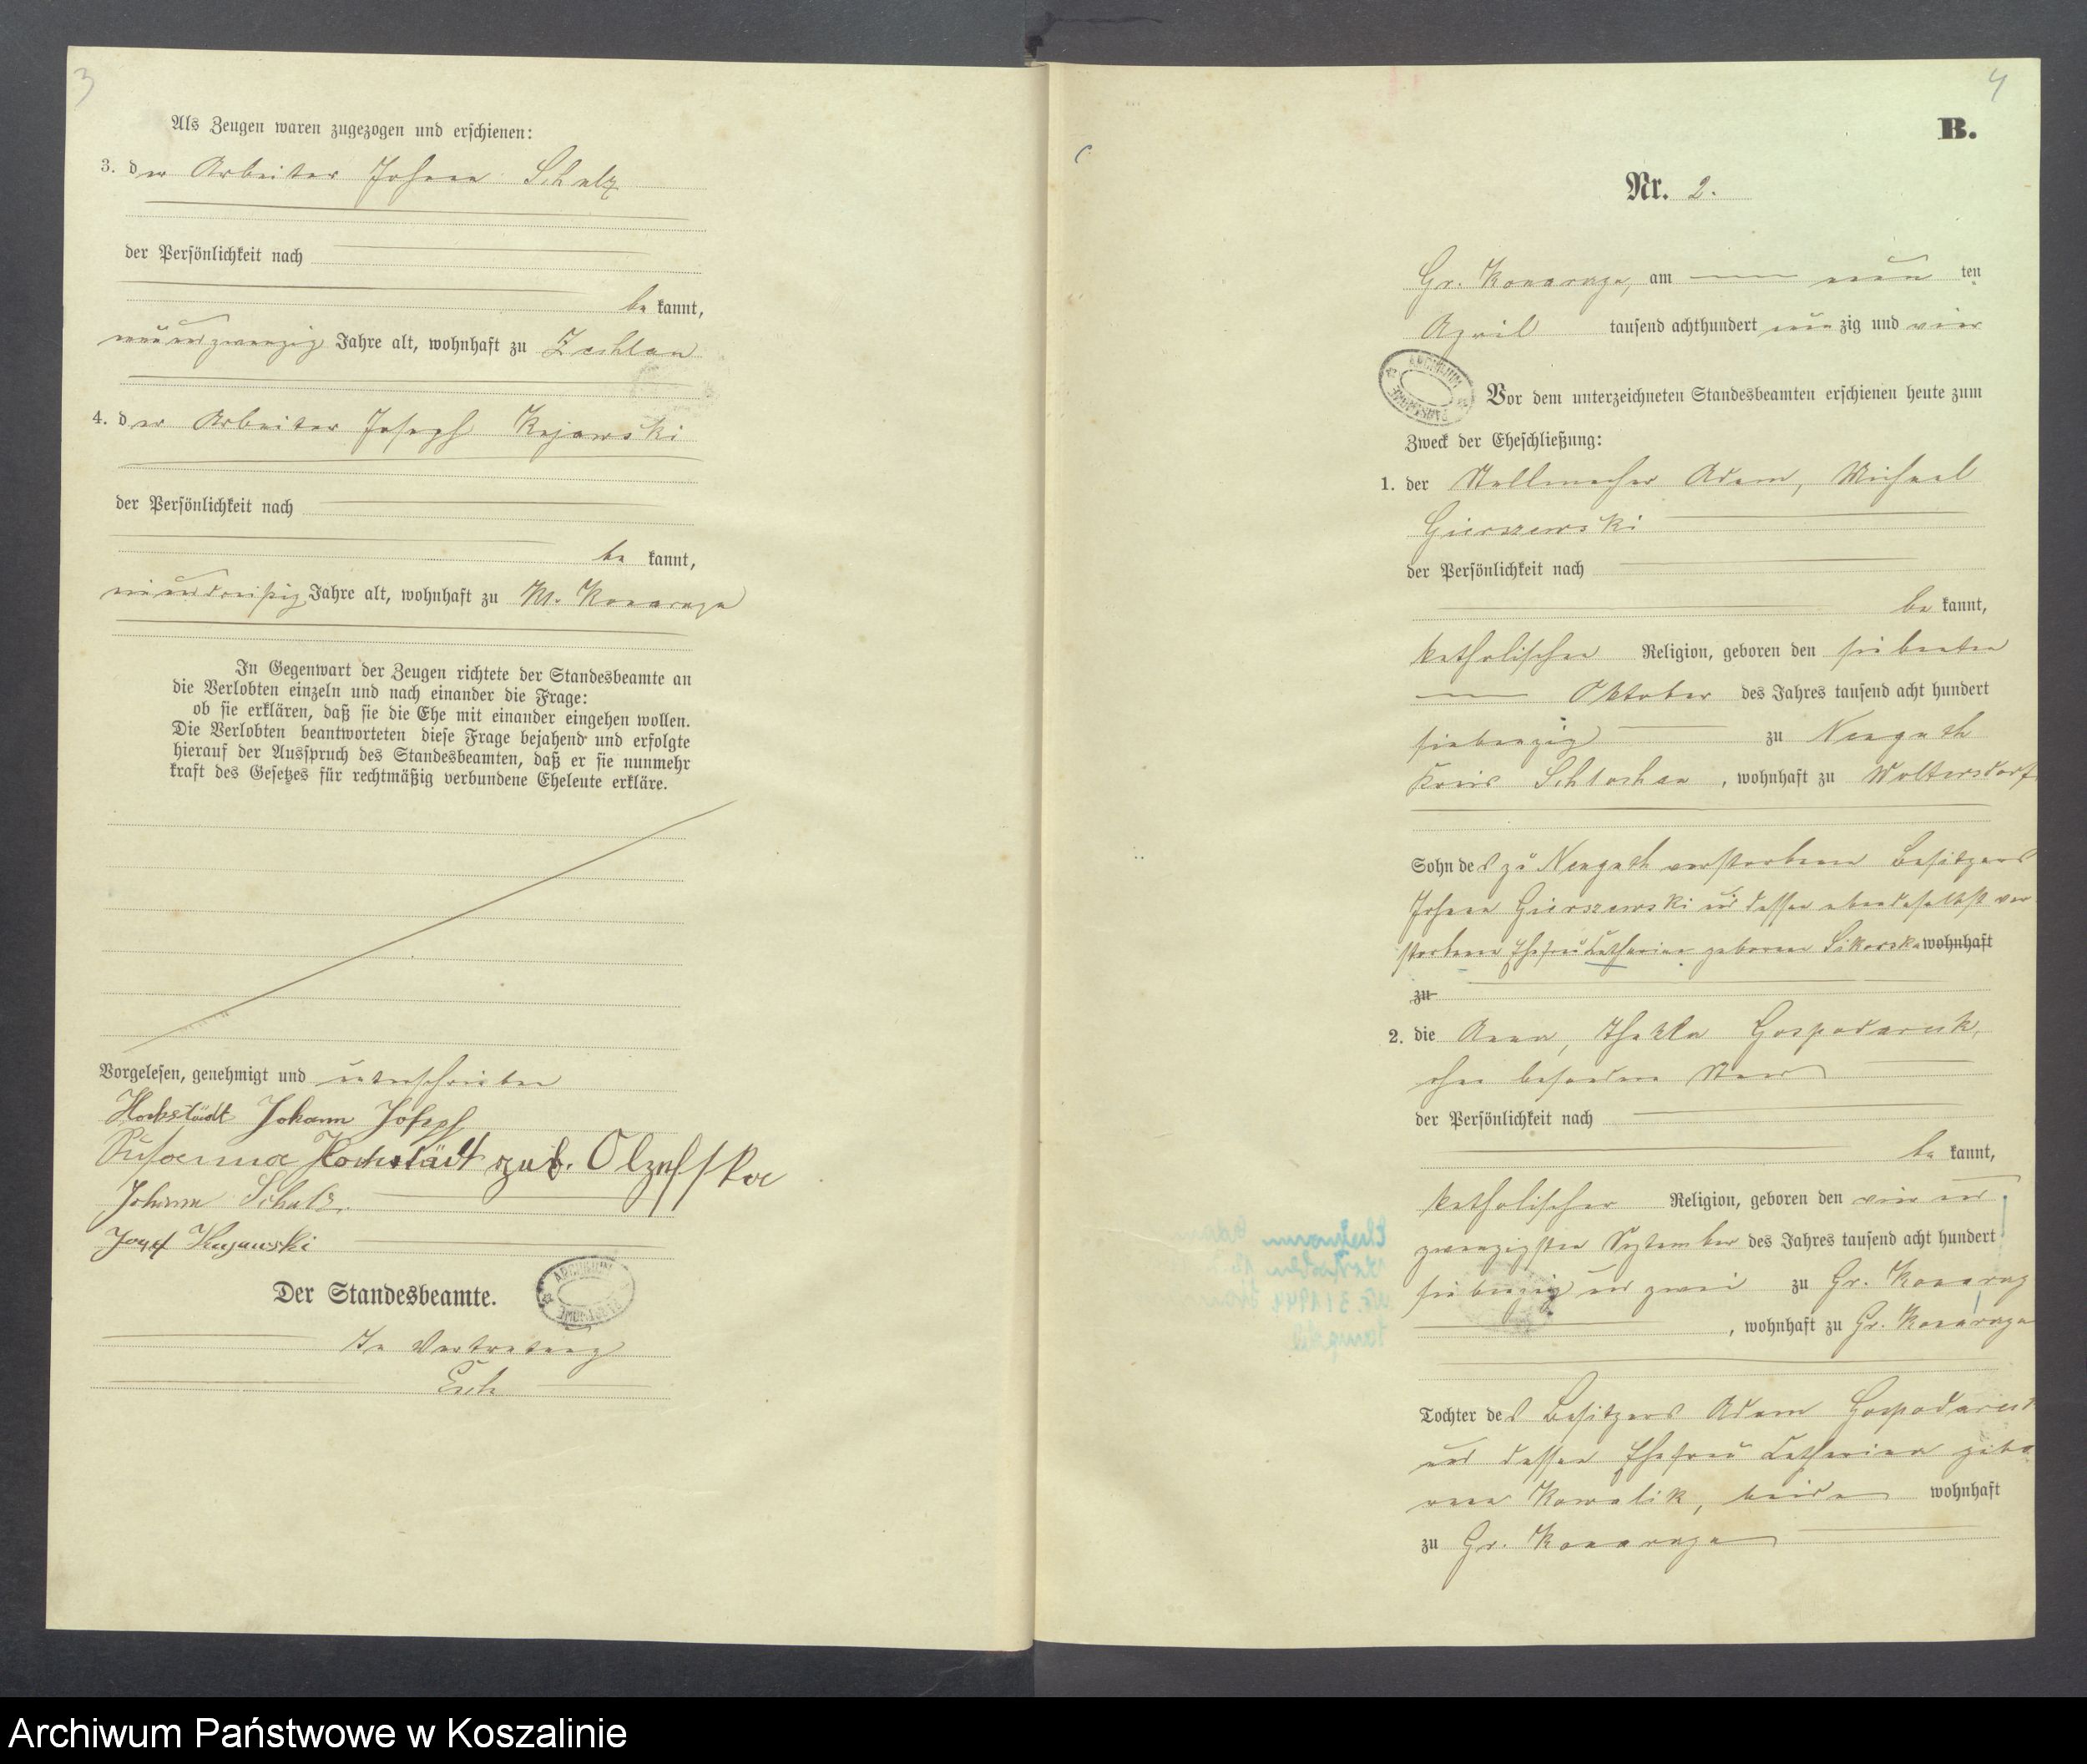 3
Als Zeugen waren zugezogen und erschienen:
3. der Arbeiter Johann Schulz
der Persönlichkeit nach
be kannt,
neun und zwanzig Jahre alt, wohnhaft zu Zechlau
4. der Arbeiter Joseph Kujawski
der Persönlichkeit nach
be kannt,
ein und dreißig Jahre alt, wohnhaft zu Kl. Konarczyn
In Gegenwart der Zeugen richtete der Standesbeamte an
die Verlobten einzeln und nach einander die Frage:
ob sie erklären, daß sie die Ehe mit einander eingehen wollen.
Die Verlobten beantworteten diese Frage bejahend und erfolgte
hierauf der Ausspruch des Standesbeamten, daß er sie nunmehr
kraft des Gesetzes für rechtmäßig verbundene Eheleute erkläre.
Vorgelesen, genehmigt und unterschrieben
Hochstädt Johann Joseph
Susanna Hochstädt geb. Olzefska
Johann Schulz.
Josef Kujawski
Der Standesbeamte.
In Vertretung
4
B.
Nr. 2.
Gr. Konarczyn, am neun ten
April tausend achthundert neun zig und vier
Vor dem unterzeichneten Standesbeamten erschienen heute zum
Zweck der Eheschließung:
1. der Stellmacher Adam, Michael
Gierszewski
der Persönlichkeit nach
be kannt,
katholischer Religion, geboren den siebenten
Oktober des Jahres tausend acht hundert
siebenzig zu Neuguth
Kreis Schlochau, wohnhaft zu Woltersdorf
Sohn des zu Neuguth verstorbenen Besitzers
Johann Gierszewski und dessen ebendaselbst ver
storbene Ehefrau Catharina geborene Sikorska wohnhaft
zu
2. die Anna, Thekla Gospodarek,
ohne besonderen Stand
der Persönlichkeit nach
be kannt,
katholischer Religion, geboren den vier und
zwanzigsten September des Jahres tausend acht hundert
siebenzig und zwei zu Gr. Konarczyn
, wohnhaft zu Gr. Konarczyn
Tochter des Besitzers Adam Gospodarek
und dessen Ehefrau Catharina gebo
rene Kowalik, beide wohnhaft
zu Gr. Konarczyn
Archiwum Państwowe w Koszalinie